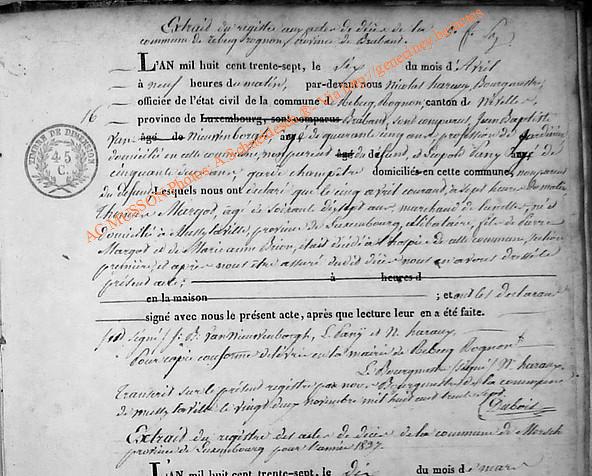 Extrait du registre aux actes de décès de la
commune de Rebecq Rognon, province de Brabant.
L'AN mil huit cent trente-sept, le six du mois d'Avril
à neuf heures du matin, par-devant nous Nicolas haraux, Bourgmestre,
officier de l'état civil de la commune de Rebecq Rognon, canton de Nivelles,
16
province de Luxembourg, sont comparus Brabant, sont comparus Jean Baptiste
Van âgé de Nieuvenborgh âgé de quarante cinq ans, profession de
domicilié en cette commune, non parent âgé du défunt, et Léopold Pany âgé de
cinquante ans, garde champêtre domiciliés en cette commune, non parent
du défunt Lesquels nous ont déclaré que le cinq avril courant, à sept heures du matin
Margot, âgé de soixante dix sept ans, marchand de né et
domicilié à Mussy la ville, province de Luxembourg, célibataire, fils de Pierre
Margot et de Marie anne Brion, était décédé à de cette commune, section
première, et après nous être assuré dudit décès nous en avons dressé le
présent acte; à heures d
en la maison ; et ont les déclarants
signé avec nous le présent acte, après que lecture leur en a été faite.
signé J. B. Van Nieuvenborgh, L. Pany et N. haraux.
Pour copie conforme délivrée en la mairie de Rebecq Rognon
L. Bourgmestre (signé) N. haraux
Transcrit sur le présent registre par nous Bourgmestre de la commune
de Mussy la Ville le vingt deux novembre mil huit cent trente sept.
Dubois
Extrait du registre des actes de décès de la commune de Mersch
province de Luxembourg pour l'année 1837.
L'AN mil huit cent trente-sept, le dix du mois de mars
TIMBRE DE DIMENSION
45
C.
AG MUSSON Photos A. Schaedgen
http://geneatney.be/actes